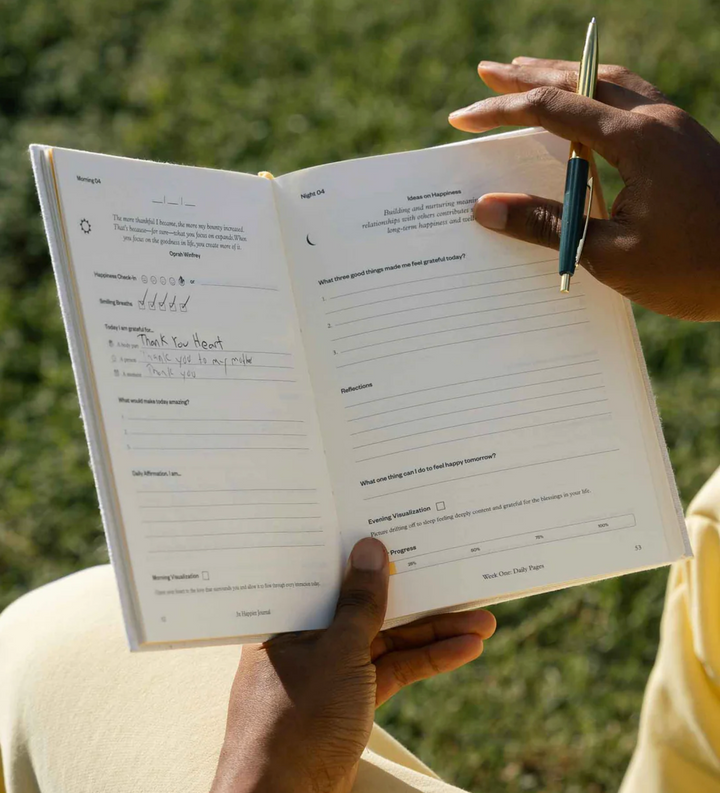 Morning 04
The more thankful I became, the more my bounty increased.
That's because—for sure—what you focus on expands. When
you focus on the goodness in life, you create more of it.
Oprah Winfrey
Happiness Check-in
or
Smiling Breaths
Today I am grateful for...
A body part Thank You Heart
A person Thank you to my mother
Thank you
What would make today amazing?
1.
2.
3.
Daily Affirmation. I am...
Morning Visualization
In Happier Journal
Night 04
Ideas on Happiness
Building and nurturing
relationships with others contributes
long-term happiness and
What three good things made me feel grateful today?
1.
2.
3.
Reflections
What one thing can I do to feel happy tomorrow?
Evening Visualization
Picture drifting off to sleep feeling deeply content and grateful for the blessings in your life.
Progress
25% 50% 75% 100%
Week One: Daily Pages
53